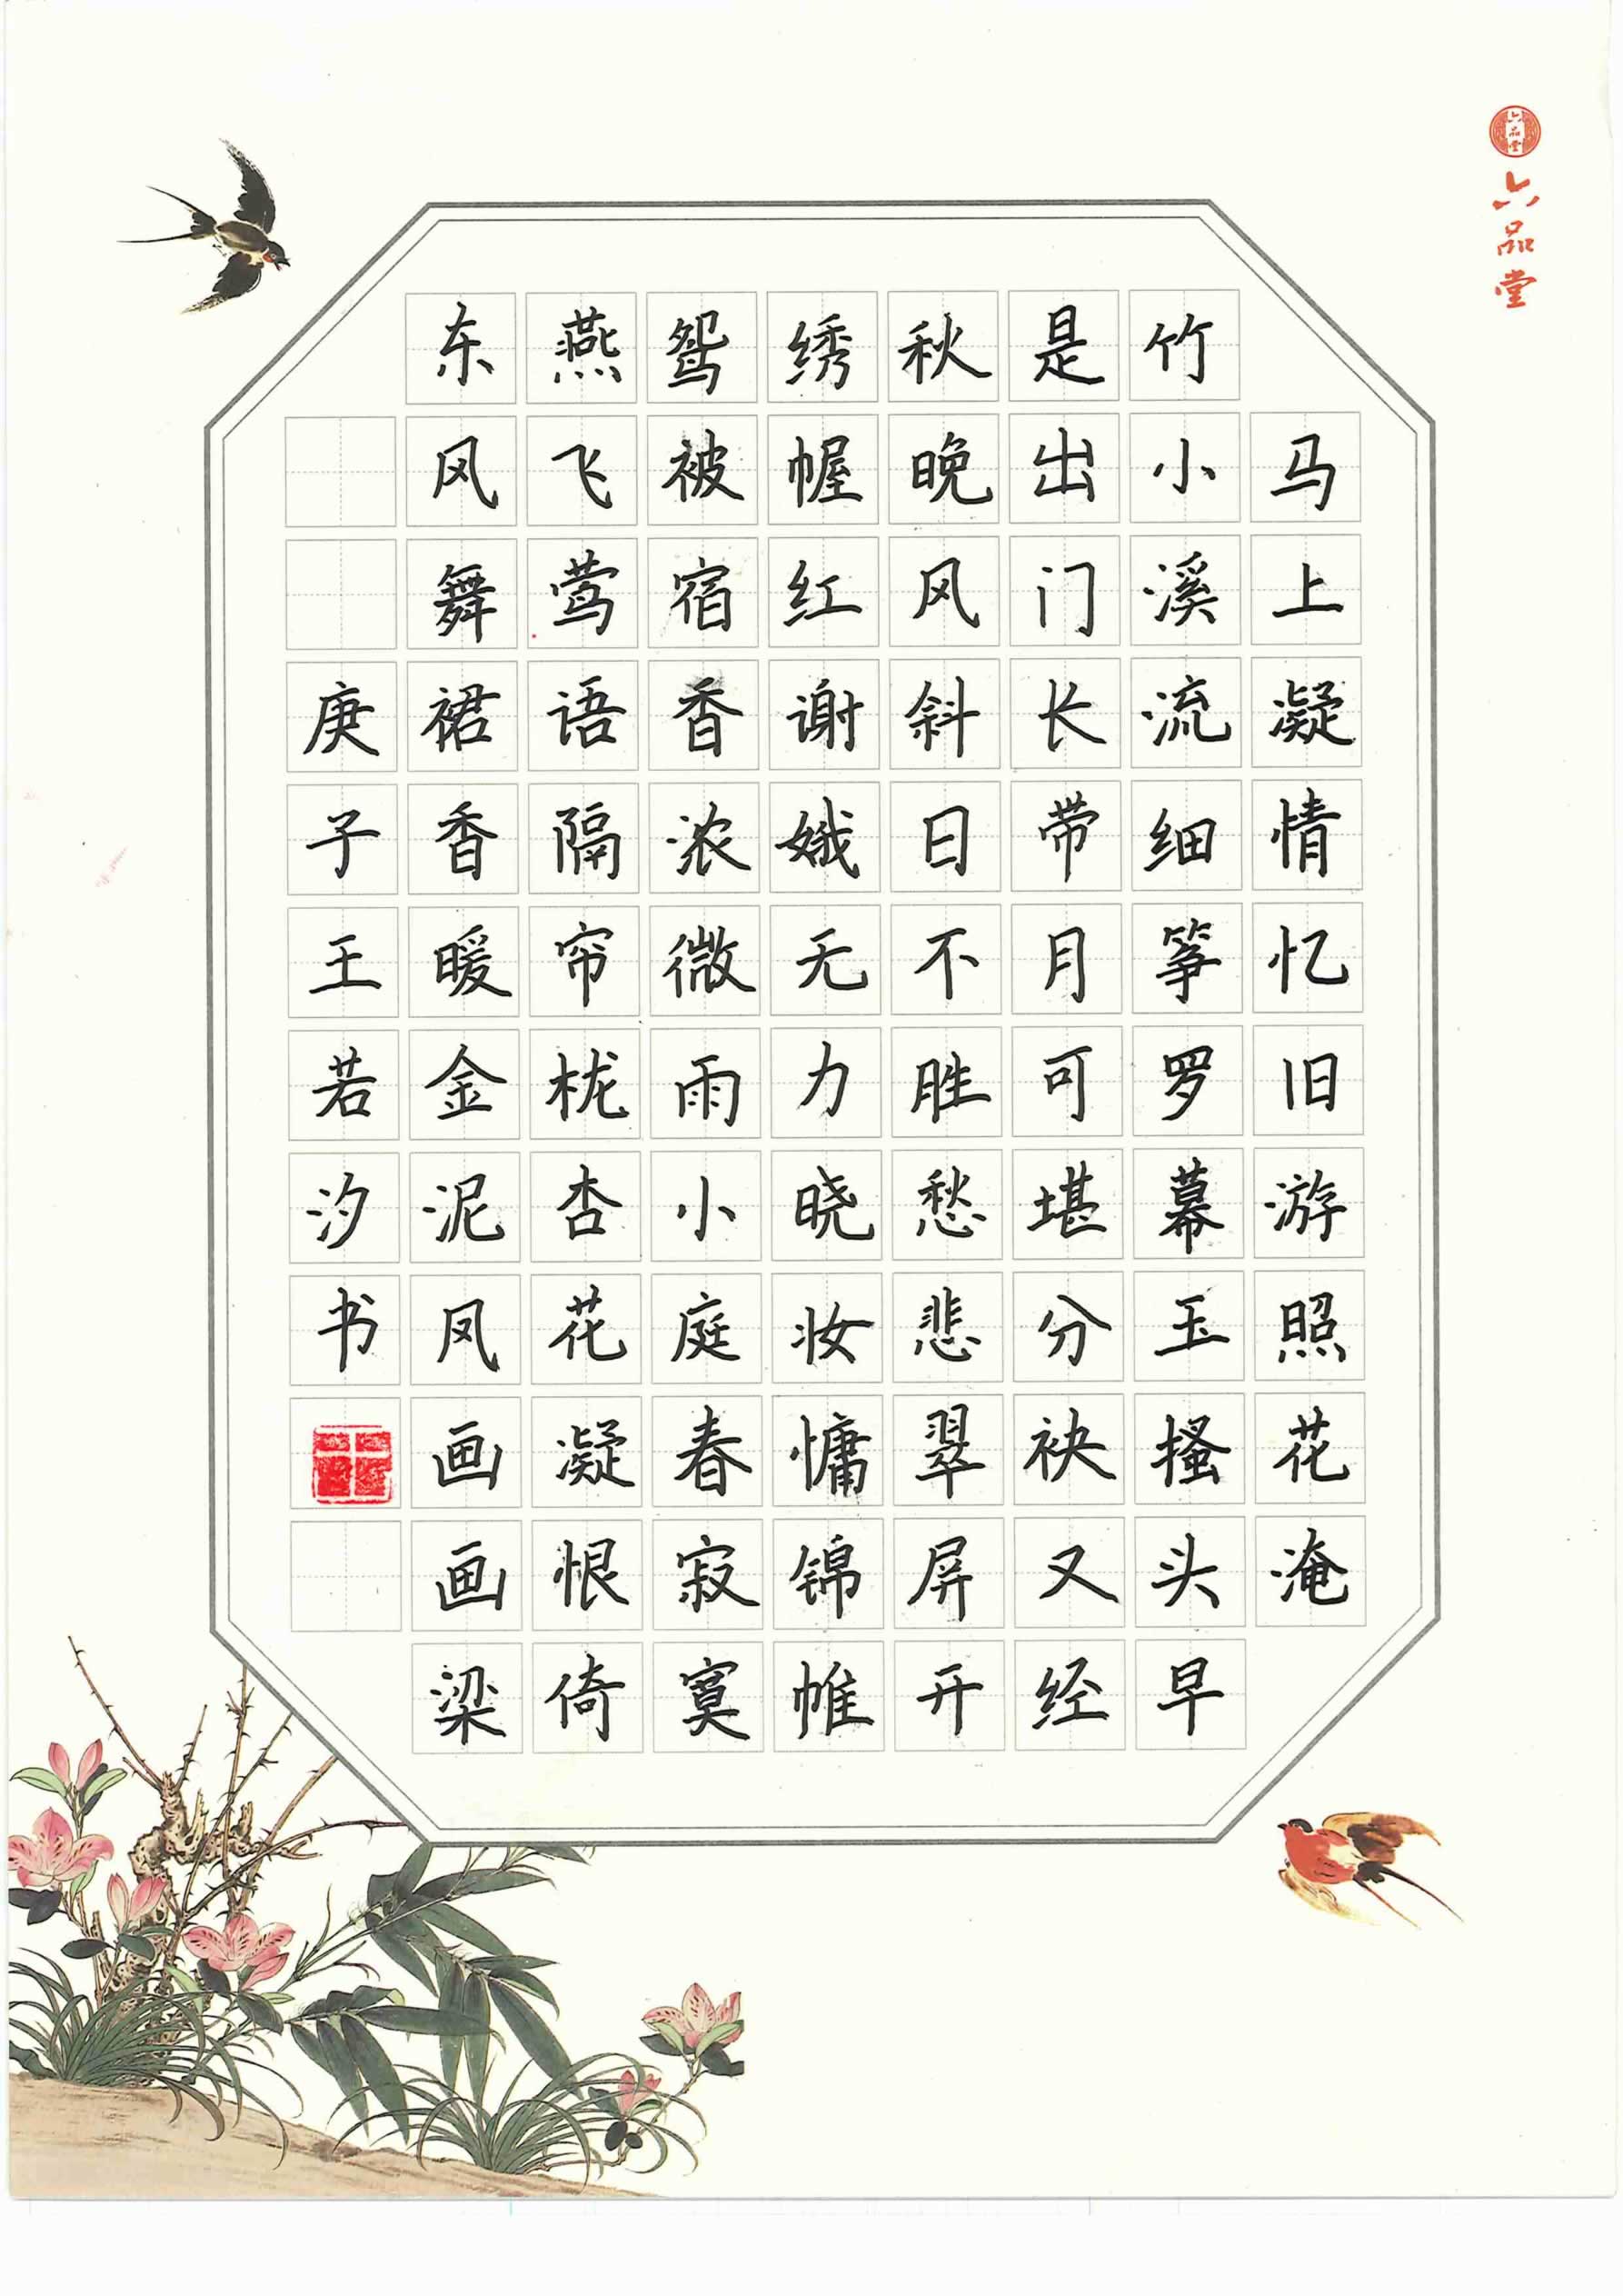 六品堂
六品堂
马上凝情忆旧游照花淹
竹小溪流细筝罗幕玉搔头早
是出门长带月可堪分袂又经
秋晚风斜日不胜愁悲翠屏开
绣幄红谢娥无力晓妆慵锦帷
鸳被宿香浓微雨小庭春寂寞
燕飞莺语隔帘栊杏花凝恨倚
东风舞裙香暖金泥凤画画梁
庚子王若汐书